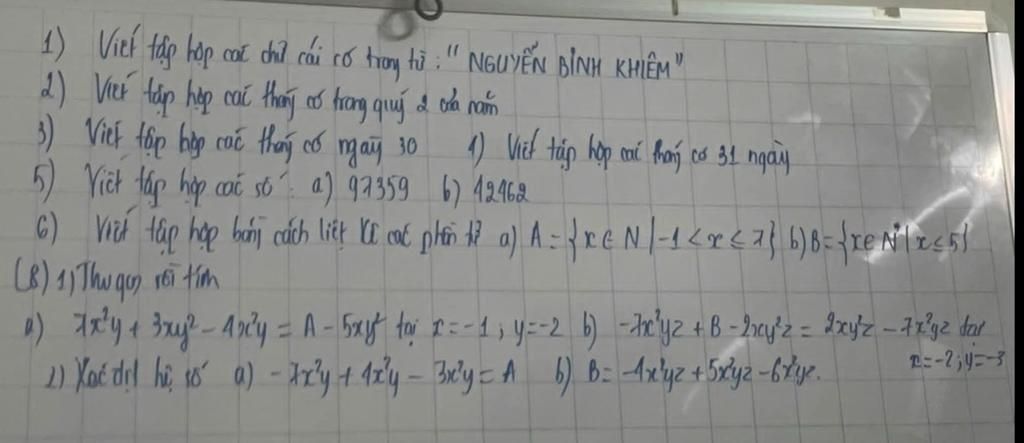 1) Viết tập hợp các chữ cái có trong từ: "NGUYỄN BỈNH KHIÊM"
2) Viết tập hợp các tháng có trong quý 2 của năm
3) Viết tập hợp các tháng có ngày 30 4) Viết tập hợp các tháng có 31 ngày
5) Viết tập hợp các số: a) 97359 b) 42462
6) Viết tập hợp bằng cách liệt kê các phần tử a) A = {x ∈ N | -1 < x ≤ 7} b) B = {x ∈ N* | x ≤ 5}
(8) 1) Thu gọn rồi tính
a) 7x²y + 3xy² - 4x²y = A - 5xy² tại x = -1; y = -2 b) -7x²yz + B - 2xy²z = 2xy²z - 7x²yz
x = -2; y = -3
2) Xác định hệ số a) -7x²y + 4x²y - 3x²y = A b) B = -4x²yz + 5x²yz - 6x²yz.